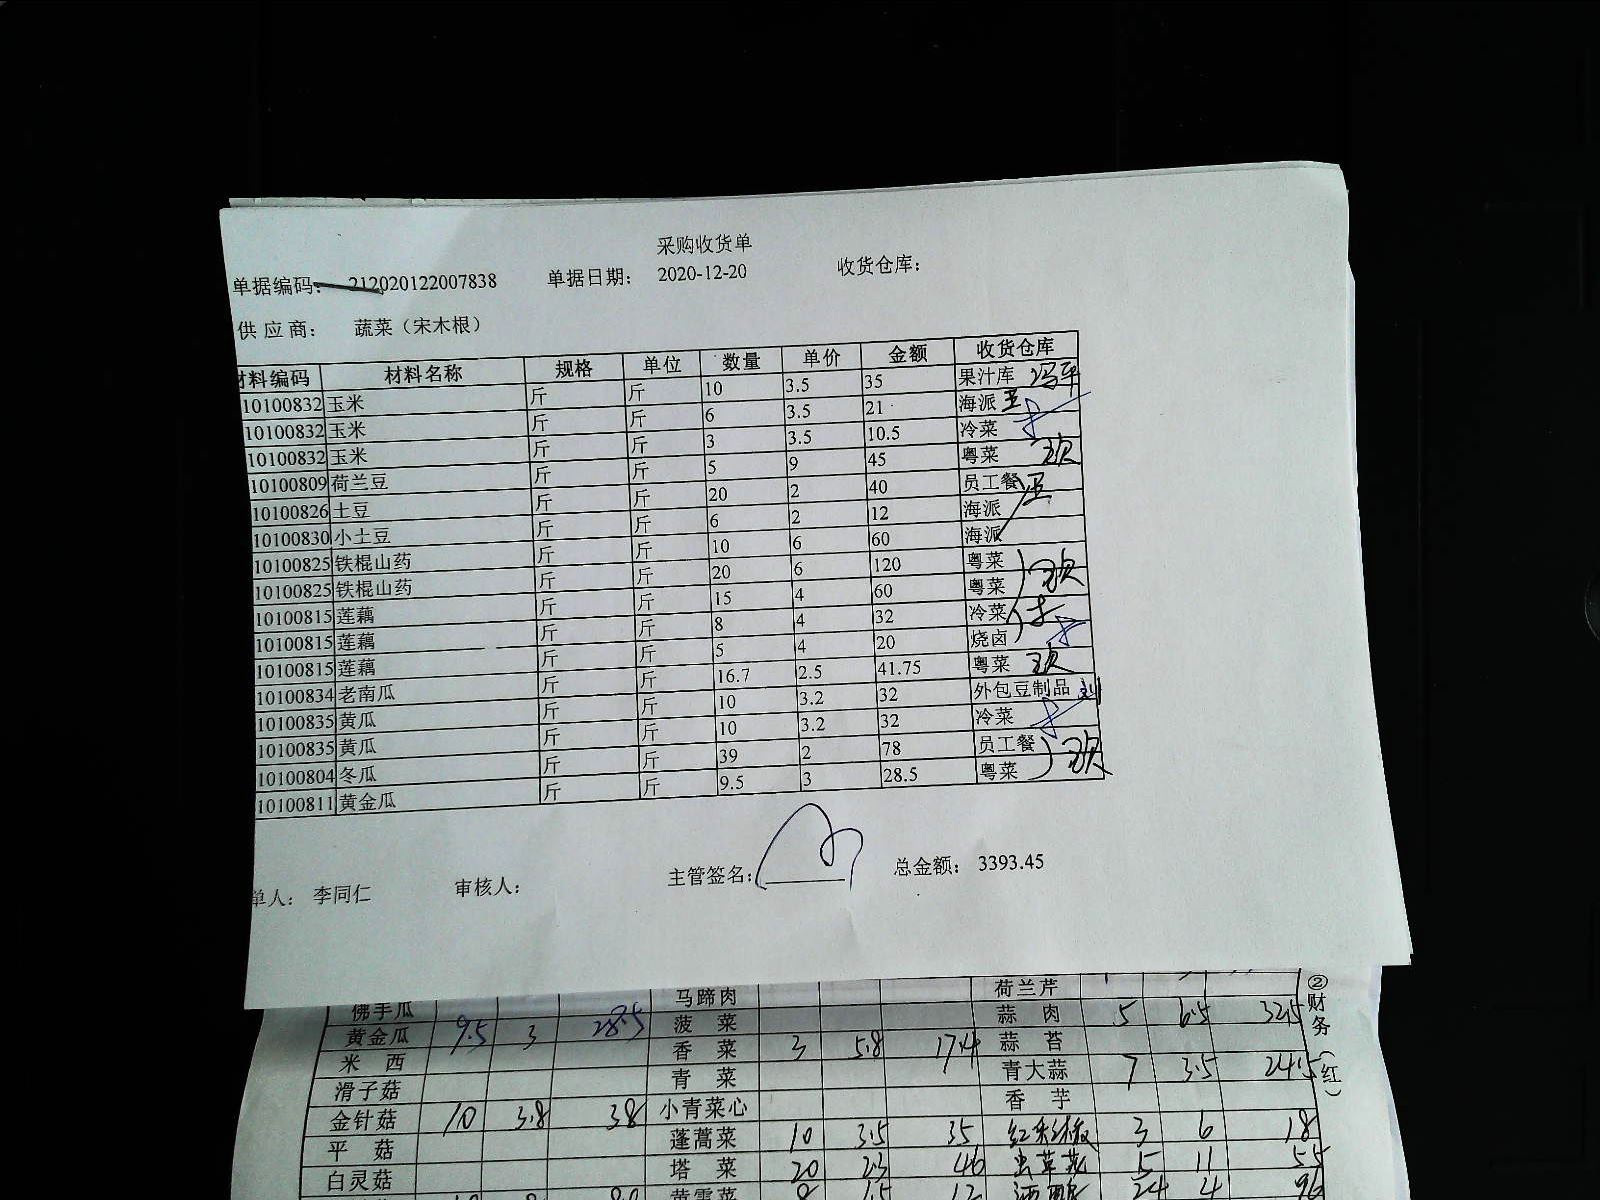 采购收货单
单据编码: 212020122007838 单据日期: 2020-12-20 收货仓库:
供应商: 蔬菜（宋木根）
材料编码 材料名称 规格 单位 数量 单价 金额 收货仓库
10100832 玉米 斤 斤 10 3.5 35 果汁库
10100832 玉米 斤 斤 6 3.5 21 海派
10100832 玉米 斤 斤 3 3.5 10.5 冷菜
10100809 荷兰豆 斤 斤 5 9 45 粤菜
10100826 土豆 斤 斤 20 2 40 员工餐
10100830 小土豆 斤 斤 6 2 12 海派
10100825 铁棍山药 斤 斤 10 6 60 海派
10100825 铁棍山药 斤 斤 20 6 120 粤菜
10100815 莲藕 斤 斤 15 4 60 粤菜
10100815 莲藕 斤 斤 8 4 32 冷菜
10100815 莲藕 斤 斤 5 4 20 烧卤
10100834 老南瓜 斤 斤 16.7 2.5 41.75 粤菜
10100835 黄瓜 斤 斤 10 3.2 32 外包豆制品
10100835 黄瓜 斤 斤 10 3.2 32 冷菜
10100804 冬瓜 斤 斤 39 2 78 员工餐
10100811 黄金瓜 斤 斤 9.5 3 28.5 粤菜
单人: 李同仁 审核人: 主管签名: 总金额: 3393.45
佛手瓜 马蹄肉 荷兰芹
黄金瓜 9.5 3 28.5 菠菜 蒜肉 5 6.5 32.5
米西 香菜 3 5.8 17.4 蒜苔
滑子菇 青菜 青大蒜 7 3.5 24.5
金针菇 10 3.8 38 小青菜心 香芋
平菇 蓬蒿菜 10 3.5 35 3 6 18
白灵菇 塔菜 20 2.3 46 5 11 55
黄雪菜 8 1.5 12 24 4 96
②财务（红）